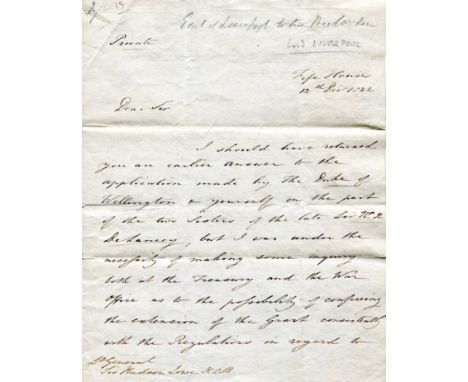 Earl of Liverpool to Sir Hudson Lowe
Lord LIVERPOOL
Private
Fife House
12th Decr 1822
Dear Sir
I should have returned
you an earlier answer to the
application made by The Duke of
Wellington & yourself on the part
of the two Sisters of the late Sir Wm H
DeLancey, but I was under the
necessity of making some inquiry
both at the Treasury and the War
Office as to the possibility of confining
the extension of the Grant consistently
with the Regulations in regard to
Lt General
Sir Hudson Lowe KCB